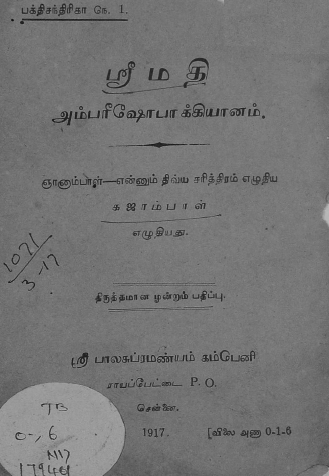 பக்திசந்திரிகா நெ. 1.
ஸ்ரீமதி
அம்பரீஷோபாக்கியானம்.
ஞானாம்பாள்—என்னும் திவ்ய சரித்திரம் எழுதிய
கஜாம்பாள்
எழுதியது.
1071
3-17
திருத்தமான மூன்றாம் பதிப்பு.
ஸ்ரீ பாலசுப்ரமண்யம் கம்பேனி
ராயப்பேட்டை P. O.
சென்னை.
1917. [விலை அணா 0-1-6
TB
0-,6
N17